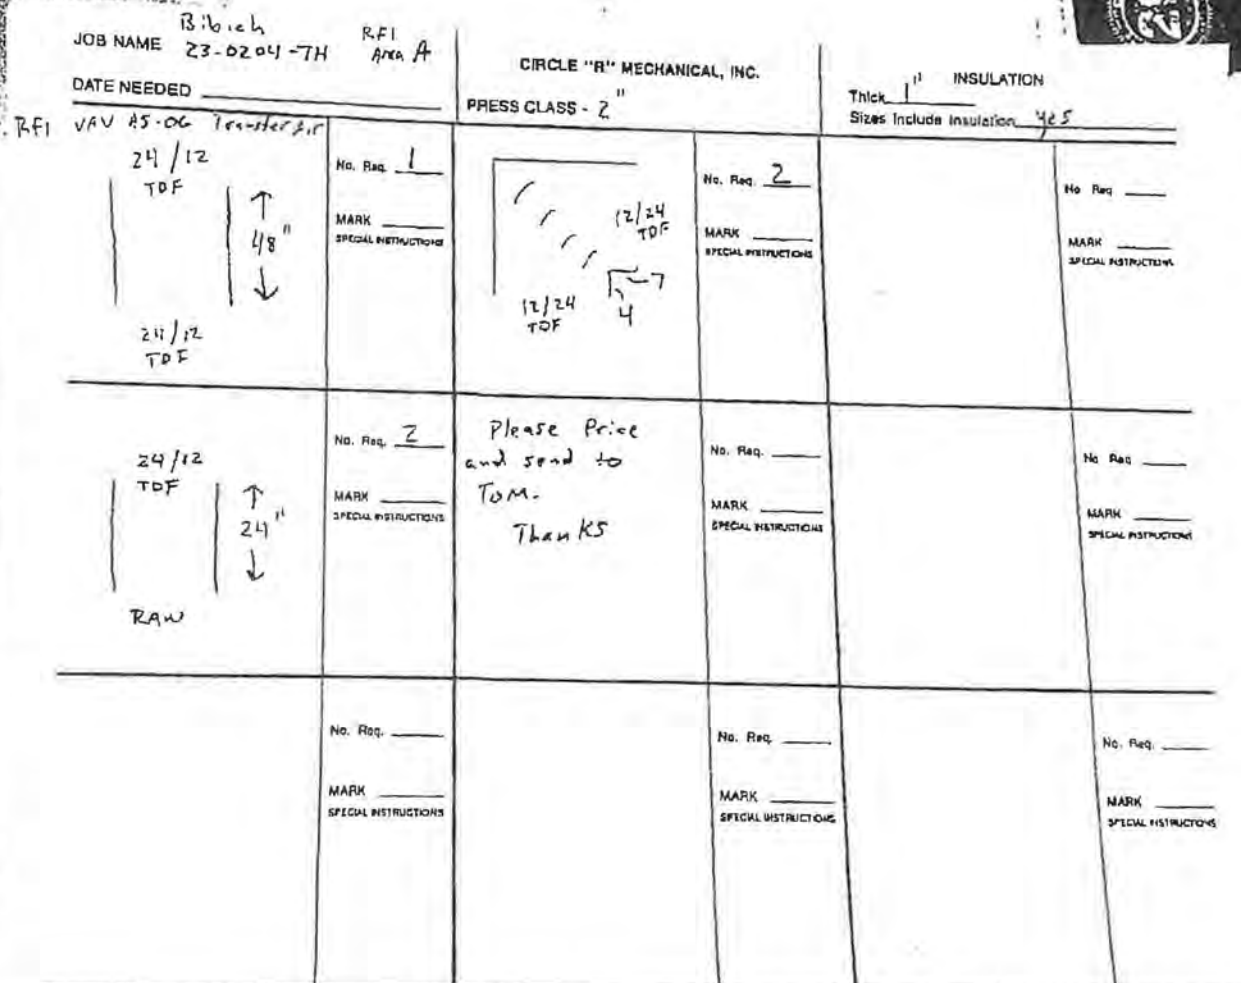 Bibich
JOB NAME 23-0204-TH
RFI
Area A
DATE NEEDED
CIRCLE "R" MECHANICAL, INC.
PRESS CLASS - 2"
1" INSULATION
Thick
Sizes Include Insulation yes
RFI VAV A5-06 Transfer Air
24/12
TDF
48"
24/12
TDF
No. Req. 1
MARK
SPECIAL INSTRUCTIONS
12/24
TDF
12/24
TDF
7
4
No. Req. 2
MARK
SPECIAL INSTRUCTIONS
No Req
MARK
SPECIAL INSTRUCTIONS
24/12
TDF
24"
RAW
No. Req. 2
MARK
SPECIAL INSTRUCTIONS
Please Price
and send to
Tom.
Thanks
No. Req.
MARK
SPECIAL INSTRUCTIONS
No Req
MARK
SPECIAL INSTRUCTIONS
No. Req.
MARK
SPECIAL INSTRUCTIONS
No. Req.
MARK
SPECIAL INSTRUCTIONS
No. Req.
MARK
SPECIAL INSTRUCTIONS